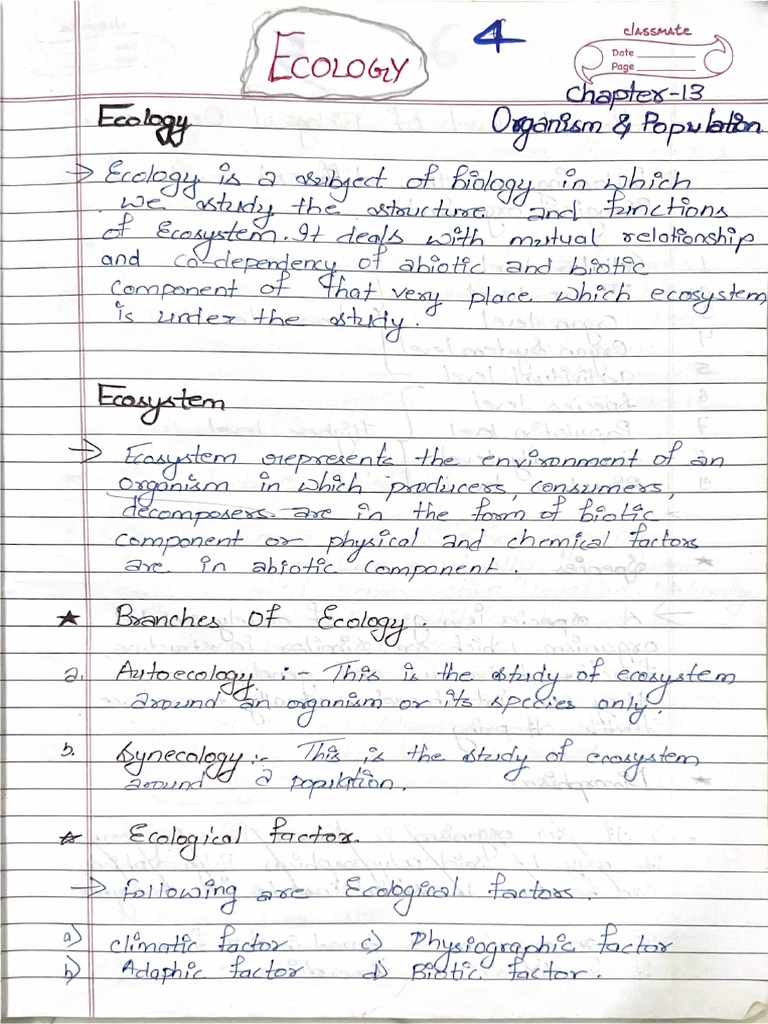 ECOLOGY
4
classmate
Date
Page
Chapter-13
Ecology
Organism & Population
→ Ecology is a subject of biology in which
we study the structure and functions
of Ecosystem. It deals with mutual relationship
and co-dependency of abiotic and biotic
component of that very place which ecosystem
is under the study.
Ecosystem
→ Ecosystem represents the environment of an
organism in which producers, consumers,
decomposers are in the form of biotic
component or physical and chemical factors
are in abiotic component.
★ Branches Of Ecology.
a. Autoecology :- This is the study of ecosystem
around an organism or its species only.
b. Synecology :- This is the study of ecosystem
around a population.
★ Ecological factor.
→ following are Ecological factors.
a) climatic factor c) Physiographic factor
b) Adaphic factor d) Biotic factor.